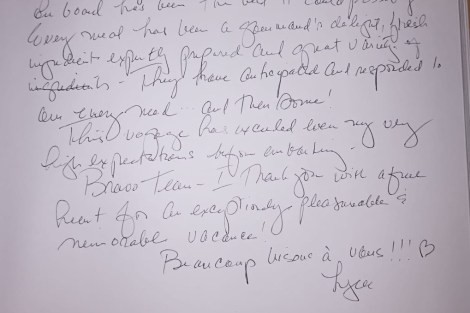 on board has been the best it could possibly
Every meal has been a gourmand's delight, fresh
ingredients expertly prepared and great variety of
ingredients - They have anticipated and responded to
our every need... and then some!
This voyage has exceeded even my very
high expectations before embarking.
Bravo Team - I thank you with a full
heart for an exceptionally pleasurable &
memorable vacance!
Beaucoup bisous à vous!!!